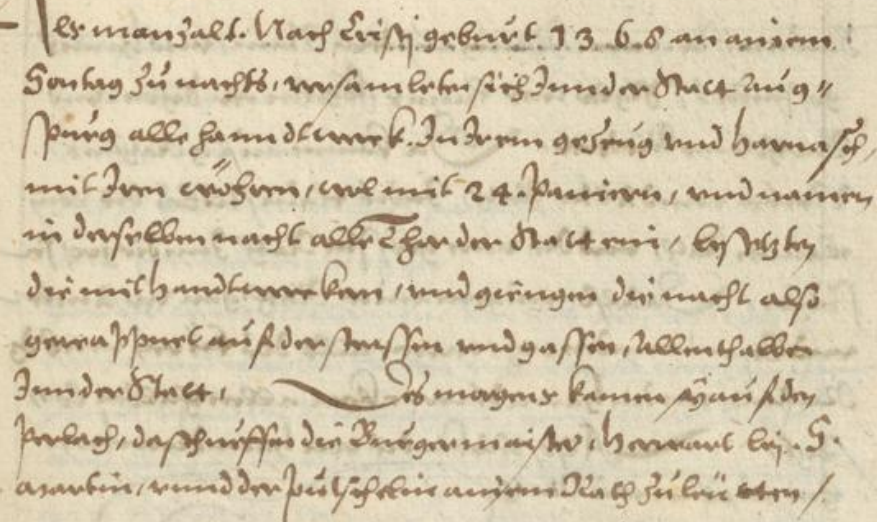 Als man zalt. Nach Cristi geburt. 1368 an ainem
Sontag zu nachts, versamleten sich Inn der Statt Aug=
spurg alle hanndtwerck. In Irem gezeug vnd Harnasch,
mit Iren wöhren, wol mit 24. Paniern, vnd namen
in derselben nacht alle Thor der Statt ein, besetzten
die mit handtwerckern, vnd giengen die nacht also
gewappnet auf der strassen vnd gassen, Allenthalben
Inn der Statt, Des morgens kamen sy auf den
Perlach, da schueffen die Burgermaister, Herwart bej. S.
Martin, vnnd der Pütschelin ainem Rath zu leütten /